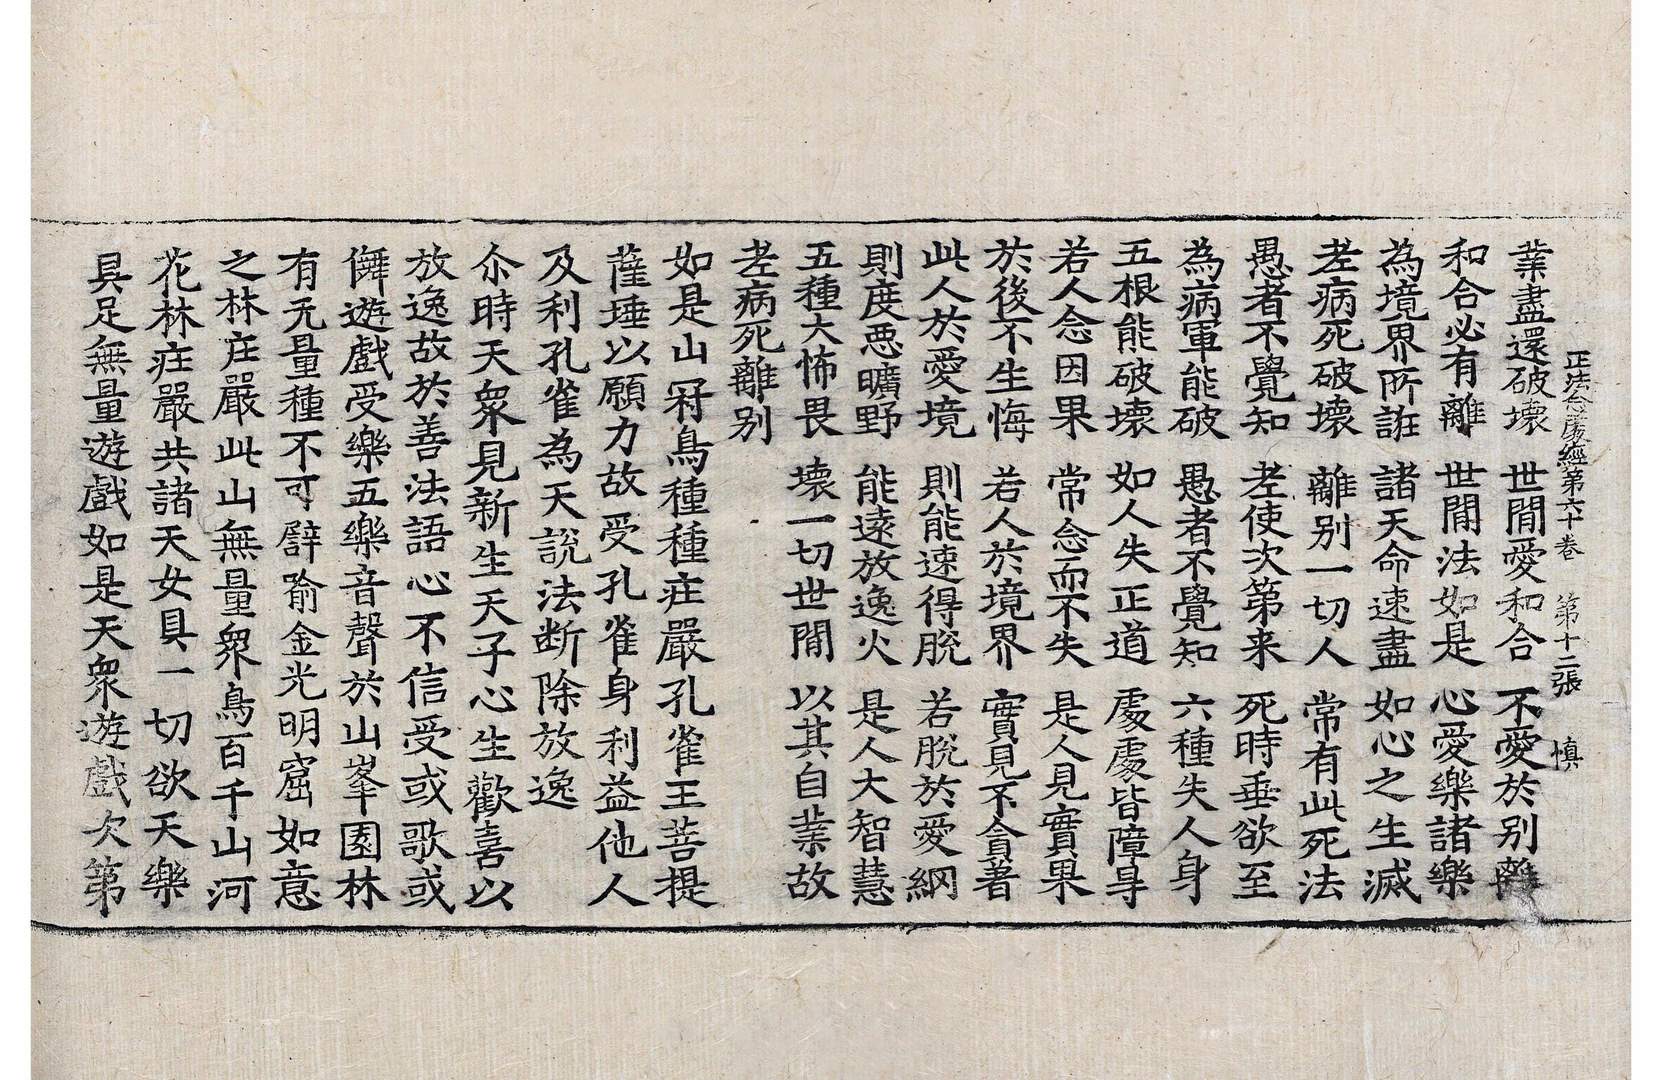 正法念處經第六十卷 第十二張 慎
業盡還破壞 世間愛和合 不愛於別離
和合必有離 世間法如是 心愛樂諸樂
為境界所誑 諸天命速盡 如心之生滅
老病死破壞 離別一切人 常有此死法
愚者不覺知 老使次第来 死時垂欲至
為病軍能破 愚者不覺知 六種失人身
五根能破壞 如人失正道 處處皆障㝵
若人念因果 常念而不失 是人見實果
於後不生悔 若人於境界 實見不貪著
此人於愛境 則能速得脫 若脫於愛網
則度惡曠野 能遠放逸火 是人大智慧
五種大怖畏 壞一切世間 以其自業故
老病死離別
如是山冠鳥種種庄嚴孔雀王菩提
薩埵以願力故受孔雀身利益他人
及利孔雀為天說法断除放逸
尒時天衆見新生天子心生歡喜以
放逸故於善法語心不信受或歌或
儛遊戲受樂五樂音聲於山峯園林
有无量種不可譬喻金光明窟如意
之林庄嚴此山無量衆鳥百千山河
花林庄嚴共諸天女具一切欲天樂
具足無量遊戲如是天衆遊戲次第